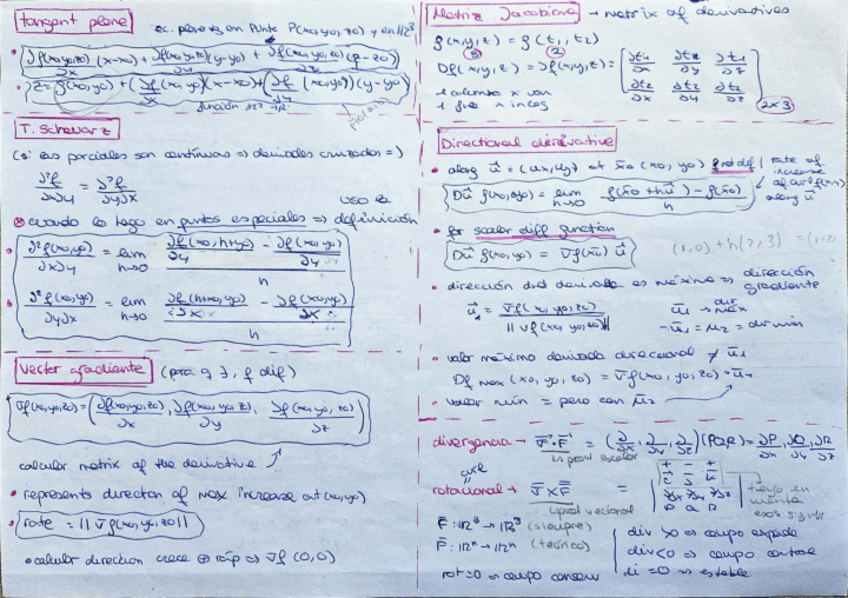 tangent plane
ec. plano es en punto P(x0,y0,z0) y en ℝ³
• ∂f(x0,y0,z0)/∂x (x-x0) + ∂f(x0,y0,z0)/∂y (y-y0) + ∂f(x0,y0,z0)/∂z (z-z0)
• z = f(x0,y0) + (∂f/∂x (x0,y0))(x-x0) + (∂f/∂y (x0,y0))(y-y0)
función ℝ²→ℝ
T. Schwarz
(si las parciales son continuas => derivadas cruzadas =)
∂²f/∂x∂y = ∂²f/∂y∂x
uso la
⊗ cuando lo hago en puntos especiales => definición
• ∂²f(x0,y0)/∂x∂y = lim h→0 (∂f(x0,h+y0)/∂y - ∂f(x0,y0)/∂y)/h
• ∂²f(x0,y0)/∂y∂x = lim h→0 (∂f(h+x0,y0)/∂x - ∂f(x0,y0)/∂x)/h
Vector gradiente (para q ∃, f dif)
∇f(x0,y0,z0) = (∂f(x0,y0,z0)/∂x, ∂f(x0,y0,z)/∂y, ∂f(x0,y0,z0)/∂z)
calcular matrix of the derivative
• represents direction of max increase at (x0,y0)
• rate = ||∇f(x0,y0,z0)||
• calcular direction crece ⊕ ráp => ∇f (0,0)
Matriz Jacobiana → matrix of derivatives
f(x,y,z) = f(t1,t2)
3 2
Df(x,y,z) = ∂f(x,y,z) = [∂t1/∂x ∂t1/∂y ∂t1/∂z
∂t2/∂x ∂t2/∂y ∂t2/∂z] 2x3
Directional derivative
• along u⃗ = (ux,uy) at x̄0 (x0,y0) f not dif | rate of
increase
of at f(x,y)
along u⃗
Du⃗ f(x0,y0) = lim h→0 (f(x̄0+hu⃗) - f(x̄0))/h
• for scalar diff function
Du⃗ f(x0,y0) = ∇f(x̄0) u⃗
(1,0)+h(2,3)
• dirección dnd derivada es máxima => dirección
gradiente
u⃗1 = ∇f(x0,y0,z0)/||∇f(x0,y0,z0)||
ū1 → dir max
-ū1 = ū2 = dir min
• valor máximo derivada direccional ≠ ū1
Df max (x0,y0,z0) = ∇f(x0,y0,z0)·ū1
• valor min = pero con ū2
divergencia → ∇̄·F̄ = (∂/∂x, ∂/∂y, ∂/∂z)(P,Q,R) = ∂P/∂x, ∂Q/∂y, ∂R/∂z
prod escalar
curl
rotacional → ∇̄xF̄ = | + - +
i j k
∂/∂x ∂/∂y ∂/∂z
P Q R |
prod vectorial
tengo en
cuenta
esos signos
F̄: ℝ³→ℝ³ (siempre)
F̄: ℝⁿ→ℝⁿ (teórico)
div >0 => campo expande
div<0 => campo contrae
di =0 => estable
rot=0 => campo conserv